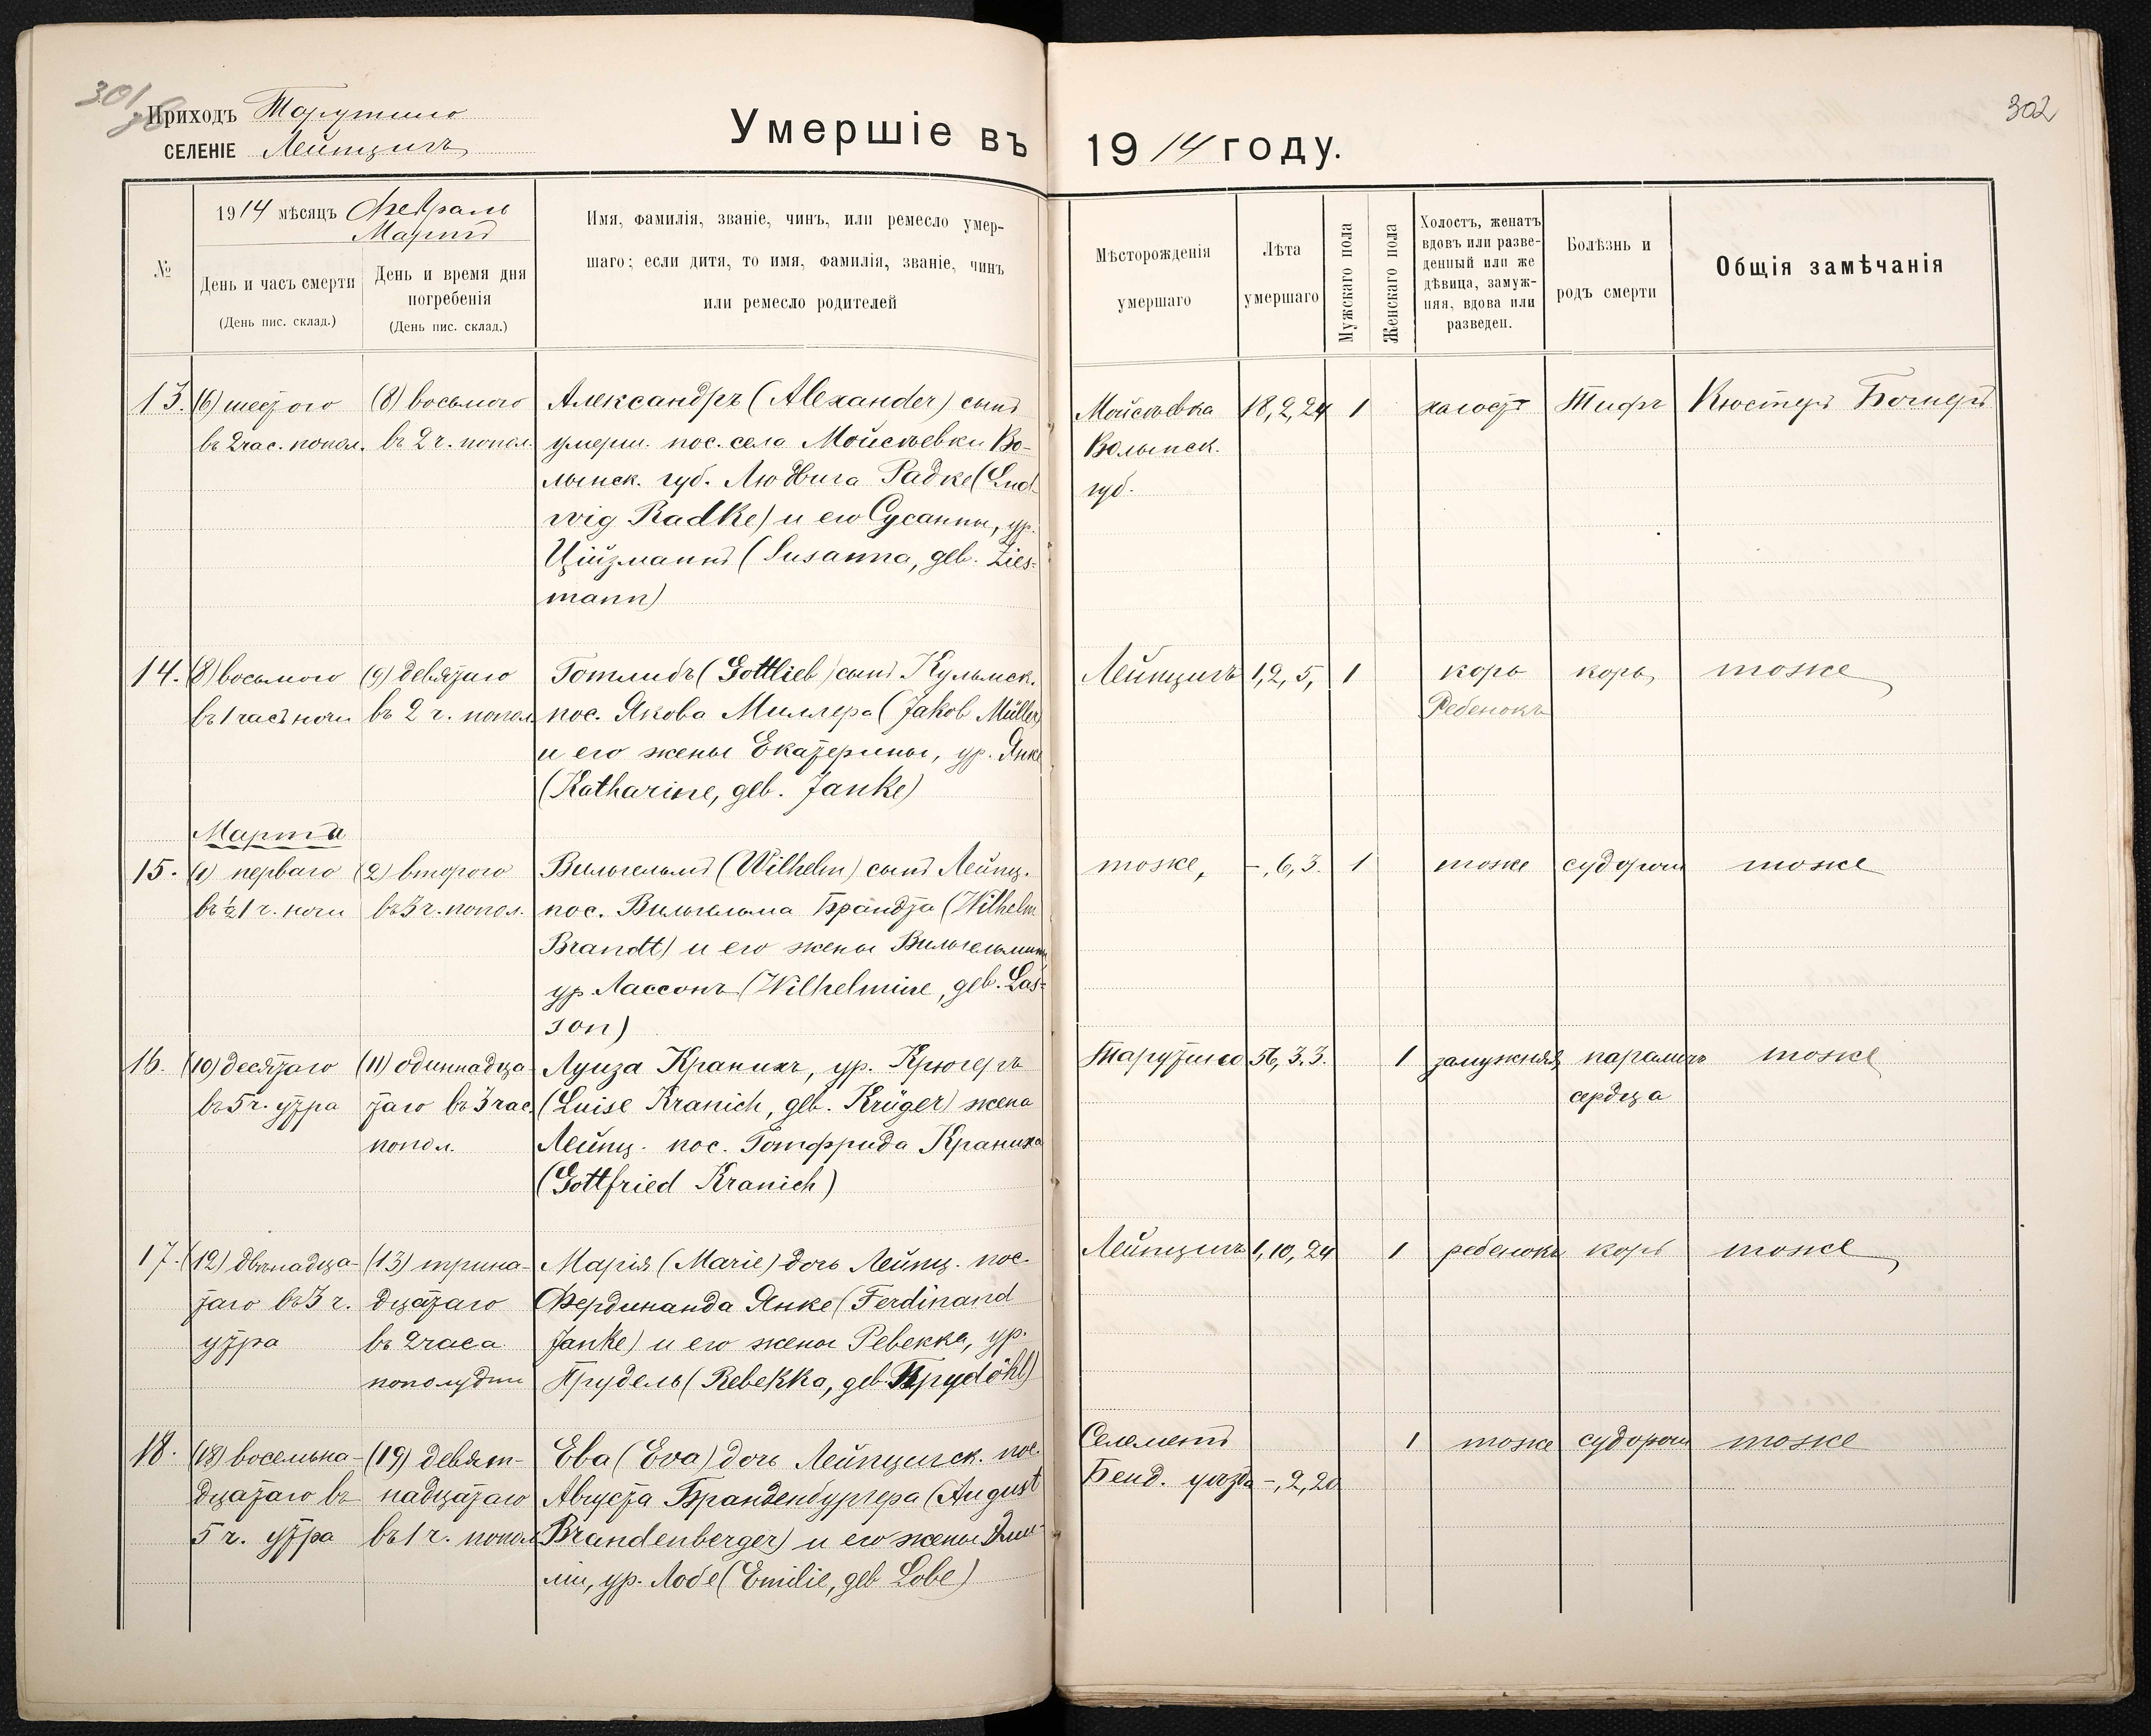 301
302
Приходъ Тарутино
СЕЛЕНІЕ Лейпцигъ
Умершіе въ 1914 году.
№
1914 мѣсяцъ Февраль
Мартъ
День и часъ смерти
(День пис. склад.)
День и время дня
погребенія
(День пис. склад.)
Имя, фамилія, званіе, чинъ, или ремесло умер-
шаго; если дитя, то имя, фамилія, званіе, чинъ
или ремесло родителей
Мѣсторожденія
умершаго
Лѣта
умершаго
Мужскаго пола
Женскаго пола
Холостъ, женатъ
вдовъ или разве-
денный или же
дѣвица, замуж-
няя, вдова или
разведен.
Болѣзнь и
родъ смерти
Общія замѣчанія
13.
(6) шестого
въ 2 час. попол.
(8) восьмого
въ 2 ч. попол.
Александръ (Alexander) сынъ
умерш. пос. села Мойсѣевки Во-
лынск. губ. Людвига Радке (Lud-
wig Radke) и его Сусанны, ур.
Цийзманъ (Susanna, geb. Zies-
mann)
Мойсѣевка
Волынск.
губ.
18, 2, 24
1
холостъ
Тифъ
Кюстеръ
14.
(8) восьмого
въ 1 часъ ночи
(9) девятаго
въ 2 ч. попол.
Готлибъ (Gottlieb) сынъ Кульмск.
пос. Якова Миллера (Jakob Müller)
и его жены Екатерины, ур. Янке
(Katharine, geb. Janke)
Лейпцигъ
1, 2, 5,
1
корь
Ребенокъ
корь,
тоже
Марта
15.
(1) перваго
въ ½ 1 ч. ночи
(2) второго
въ 3 ч. попол.
Вильгельмъ (Wilhelm) сынъ Лейпц.
пос. Вильгельма Брандта (Wilhelm
Brandt) и его жены Вильгельмины
ур. Лассонъ (Wilhelmine, geb. Las-
son)
тоже,
-, 6, 3.
1
тоже
судороги
тоже
16.
(10) десятаго
въ 5 ч. утра
(11) одиннадца-
таго въ 3 час.
попол.
Луиза Кранихъ, ур. Крюгеръ
(Luise Kranich, geb. Krüger) жена
Лейпц. пос. Готфрида Краниха
(Gottfried Kranich)
Тарутино
56, 3. 3.
1
замужняя
параличъ
сердца
тоже
17.
(12) двѣнадца-
таго въ 3 ч.
утра
(13) трина-
дцатаго
въ 2 часа
пополудни
Марія (Marie) дочь Лейпц. пос.
Фердинанда Янке (Ferdinand
Janke) и его жены Ребекка, ур.
Прудель (Rebekka, geb.
Лейпцигъ
1, 10, 24
1
ребенокъ
корь
тоже
18.
(18) восемьна-
дцатаго въ
5 ч. утра
(19) девят-
надцатаго
въ 1 ч. попол.
Ева (Eva) дочь Лейпцигск. пос.
Августа Бранденбургера (August
Brandenberger) и его жены Эми-
ліи, ур. Лобе (Emilie, geb Lobe)
Селеметъ
Бенд. уѣзда
-, 2, 20
1
тоже
судороги
тоже